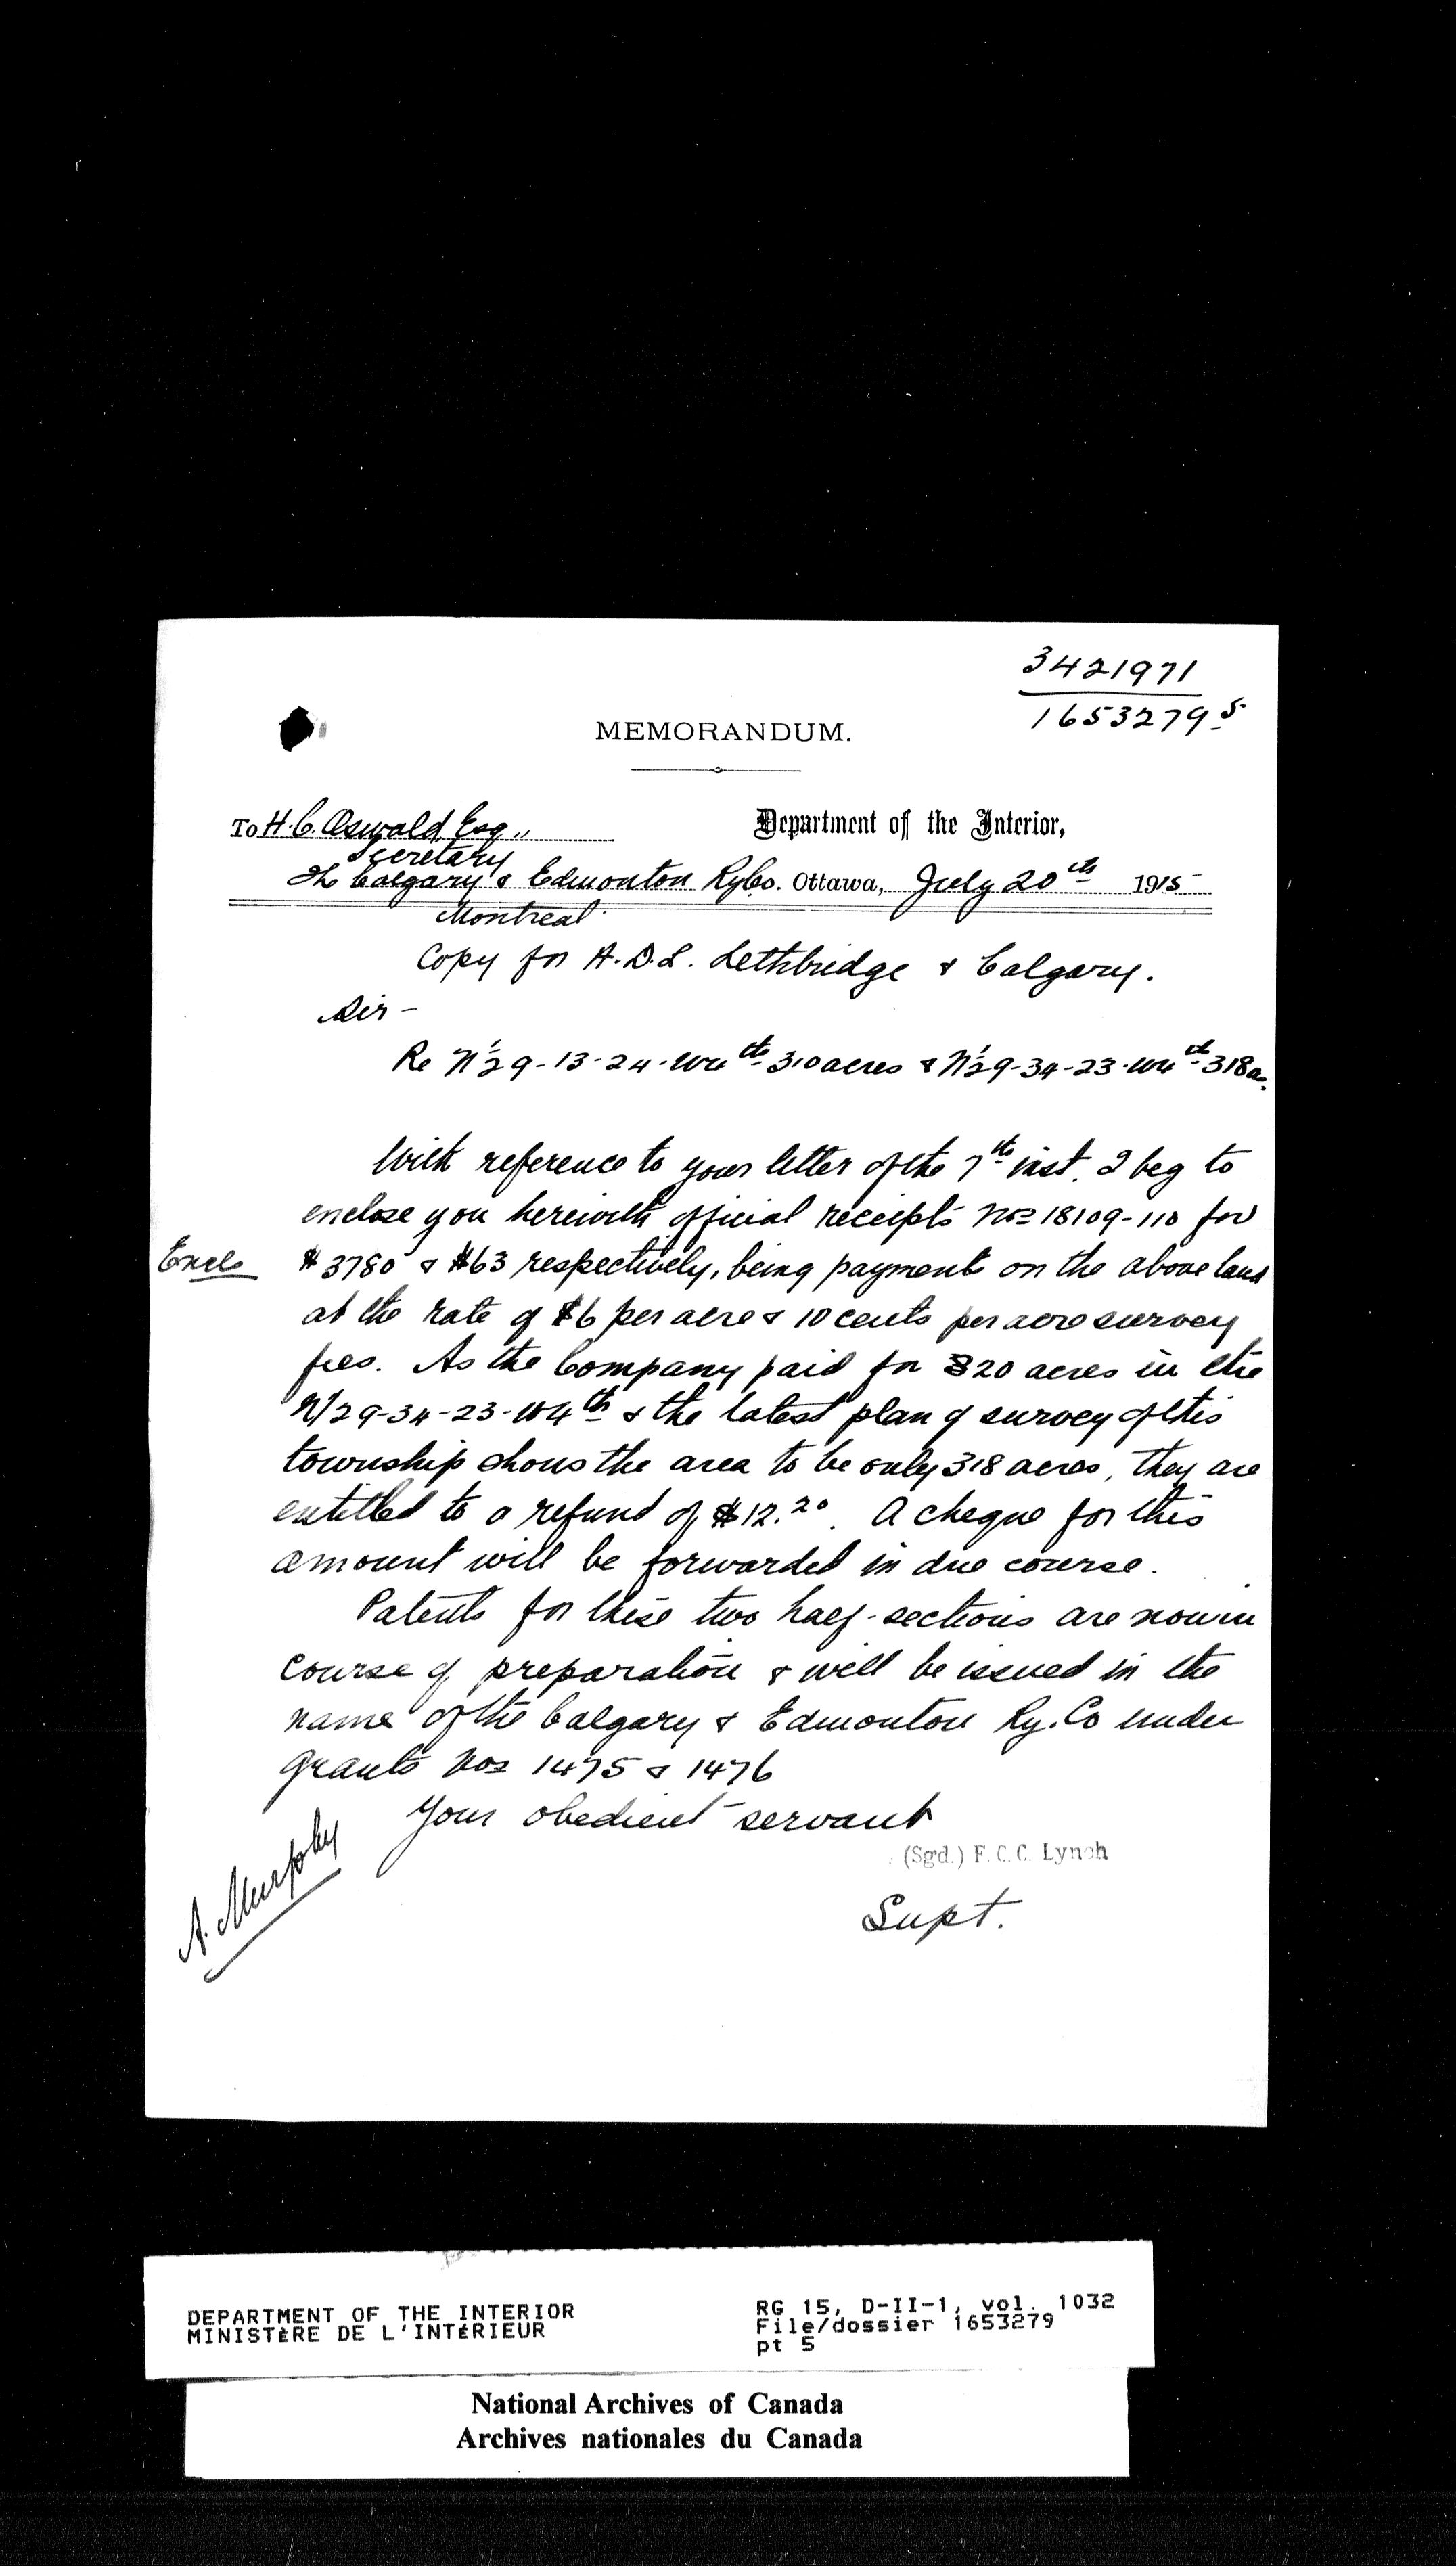 3421971
1653279 5
MEMORANDUM.
To H. C. Oswald, Esq.,
Secretary
The Calgary & Edmonton Ry Co. Ottawa, July 20th 1915
Montreal
Copy for A.D.L. Lethbridge & Calgary.
Sir -
Re N½ 9-13-24-W4th 310 acres & N½ 9-34-23-W4th 318 a.
With reference to your letter of the 7th inst. I beg to
enclose you herewith official receipts Nos 18109-110 for
Encls $3780 & $63 respectively, being payment on the above land
at the rate of $6 per acre & 10 cents per acre survey
fees. As the Company paid for 320 acres in the
N/2 9-34-23-W4th & the latest plan of survey of this
township shows the area to be only 318 acres, they are
entitled to a refund of $12.20. A cheque for this
amount will be forwarded in due course.
Patents for these two half-sections are now in
course of preparation & will be issued in the
name of the Calgary & Edmonton Ry. Co under
grants Nos 1475 & 1476
Your obedient servant
(Sgd.) F. C. C. Lynch
A. Murphy
Supt.
DEPARTMENT OF THE INTERIOR
MINISTÈRE DE L'INTÉRIEUR
RG 15, D-II-1, vol. 1032
File/dossier 1653279
pt 5
National Archives of Canada
Archives nationales du Canada